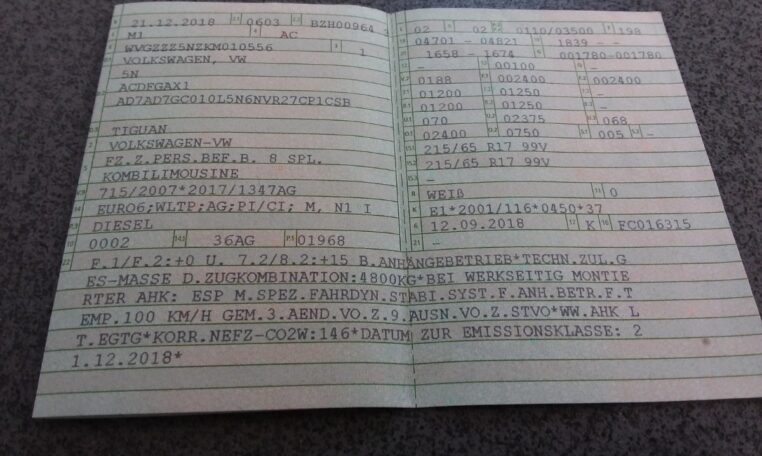 21.12.2018 0603 BZH00964 3
M1 AC
WVGZZZ5NZKM010556 1
VOLKSWAGEN, VW
5N
ACDFGAX1
AD7AD7GC010L5N6NVR27CP1CSB
TIGUAN
VOLKSWAGEN-VW
FZ.Z.PERS.BEF.B. 8 SPL.
KOMBILIMOUSINE
715/2007*2017/1347AG
EURO6;WLTP;AG;PI/CI; M, N1 I
DIESEL
0002 36AG 01968
02 02 0110/03500 198
04701 - 04821 1839 - -
1658 - 1674 001780-001780
- 00100 -
0188 002400 002400
01200 01250 -
01200 01250 -
070 02375 068
02400 0750 005 -
215/65 R17 99V
215/65 R17 99V
-
WEIß 0
E1*2001/116*0450*37
12.09.2018 K FC016315
-
F.1/F.2:+0 U. 7.2/8.2:+15 B.ANHÄNGEBETRIEB*TECHN.ZUL.G
ES-MASSE D.ZUGKOMBINATION:4800KG*BEI WERKSEITIG MONTIE
RTER AHK: ESP M.SPEZ.FAHRDYN.STABI.SYST.F.ANH.BETR.F.T
EMP.100 KM/H GEM.3.AEND.VO.Z.9.AUSN.VO.Z.STVO*WW.AHK L
T.EGTG*KORR.NEFZ-CO2W:146*DATUM ZUR EMISSIONSKLASSE: 2
1.12.2018*